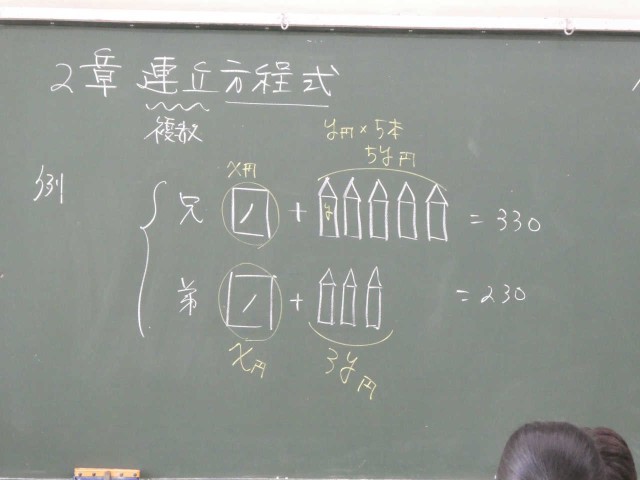 2章 連立方程式
複数
y円×5本
5y円
x円
例
兄 ノ + y = 330
弟 ノ + = 230
x円
3y円